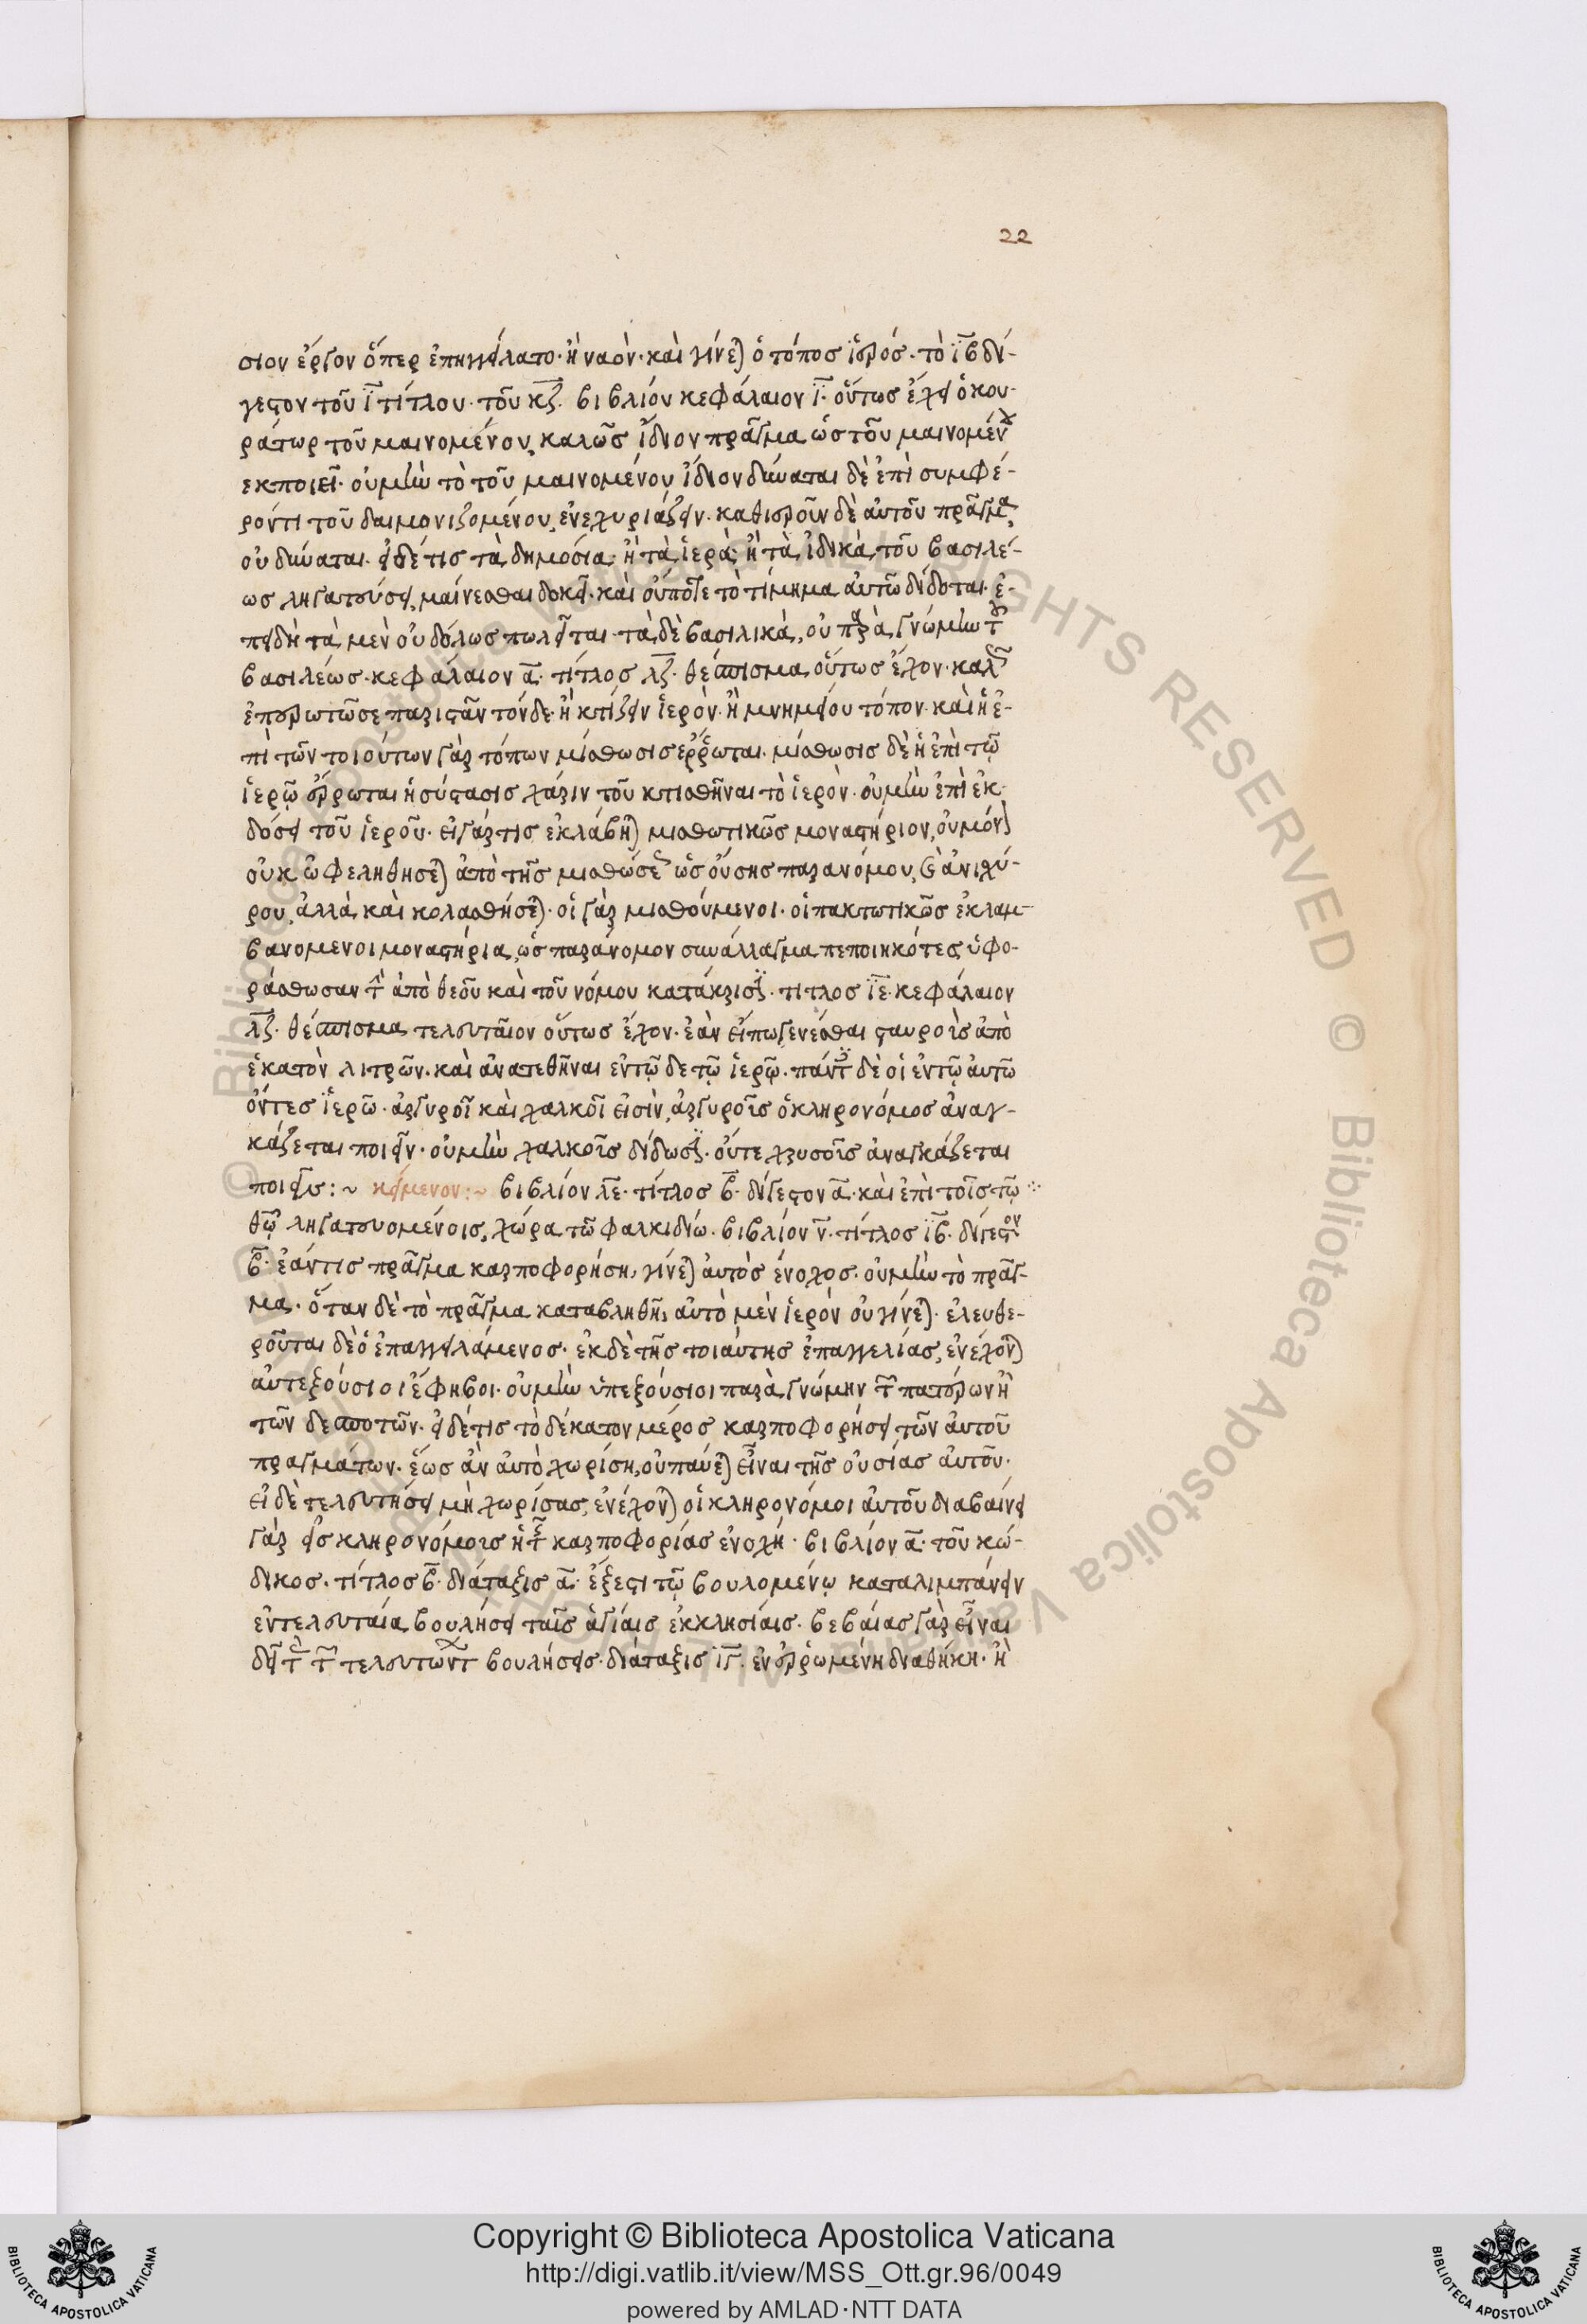 22
σιον ἔργον ὅπερ ἐπηγγείλατο· ἢ ναὸν· καὶ γίνεται ὁ τόπος ἱερός· τὸ ιβ δί-
γεστον τοῦ ι τίτλου· τοῦ κζ βιβλίου κεφάλαιον ι· οὕτως ἔχει ὁ κου-
ράτωρ τοῦ μαινομένου, καλῶς ἴδιον πρᾶγμα ὡς τοῦ μαινομένου
εκποιεῖ· οὐ μὴν τὸ τοῦ μαινομένου ἴδιον δύναται δὲ ἐπὶ συμφέ-
ροντι τοῦ δαιμονιζομένου, ἐνεχυριάζειν· καθιεροῦν δὲ αὐτοῦ πρᾶγμα,
οὐ δύναται· εἰ δέ τις τὰ δημόσια· ἢ τὰ ἱερὰ· ἢ τὰ ἰδικὰ τοῦ βασιλέ-
ως ληγατεύσει, μαίνεσθαι δοκεῖ· καὶ οὔποτε τὸ τίμημα αὐτῶ δίδοται· ἐ-
πειδὴ τὰ μὲν οὐδόλως πωλεῖται· τὰ δὲ βασιλικὰ, οὐ παρὰ γνώμην τοῦ
βασιλέως· κεφάλαιον α· τίτλος λζ· θέσπισμα οὕτως ἔχον· καλῶς
ἐπερωτῶσε παριστᾶν τόνδε· ἢ κτίζειν ἱερὸν· ἢ μνημείου τόπον· καὶ ἡ ἐ-
πὶ τῶν τοιούτων γὰρ τόπων μίσθωσις ἔρρωται· μίσθωσις δὲ ἡ ἐπὶ τῷ
ἱερῷ ἔρρωται ἡ σύστασις χάριν τοῦ κτισθῆναι τὸ ἱερὸν· οὐ μὴν ἐπὶ ἐκ-
δόσει τοῦ ἱεροῦ· εἰ γάρ τις ἐκλάβηται μισθωτικῶς μοναστήριον, οὐ μόνον
οὐκ ὠφεληθήσεται ἀπὸ τῆς μισθώσεως ὡς οὔσης παρανόμου, καὶ ἀνισχύ-
ρου, ἀλλὰ καὶ κολασθήσεται· οἱ γὰρ μισθούμενοι· οἱ πακτωτικῶς ἐκλαμ-
βανόμενοι μοναστήρια, ὡς παράνομον συνάλλαγμα πεποιηκότες, ὑφο-
ράσθωσαν τὴν ἀπὸ θεοῦ καὶ τοῦ νόμου κατάκρισιν· τίτλος ιε· κεφάλαιον
λζ· θέσπισμα τελευταῖον οὕτως ἔχον· ἐὰν εἴπω γενέσθαι σταυροὶς ἀπὸ
ἑκατὸν λιτρῶν· καὶ ἀνατεθῆναι εν τῷδε τῷ ἱερῷ· πάντες δὲ οἱ ἐν τῷ αὐτῶ
ὄντες ἱερῶ· ἀργυροῖ καὶ χαλκοῖ εἰσὶν, ἀργυροῖς ὁ κληρονόμος ἀναγ-
κάζεται ποιεῖν· οὐ μὴν χαλκοῖς δίδωσιν· οὔτε χρυσοῖς ἀναγκάζεται
ποιεῖν :~ κείμενον :~ βιβλίον λε· τίτλος β· δίγεστον α· καὶ ἐπὶ τοῖς τῷ
θεῷ ληγατευομένοις, χώρα τῶ φαλκιδίω· βιβλίον ν· τίτλος ιβ· δίγεστον
β· ἐάν τις πρᾶγμα καρποφορήση, γίνεται αὐτὸς ἔνοχος· οὐ μὴν τὸ πρᾶγ-
μα· ὅταν δὲ τὸ πρᾶγμα καταβληθῆ, αὐτὸ μὲν ἱερὸν οὐ γίνεται· ἐλευθε-
ροῦται δὲ ὁ ἐπαγγειλάμενος· ἐκ δὲ τῆς τοιαύτης ἐπαγγελίας, ἐνέχονται
αὐτεξούσιοι ἔφηβοι· οὐ μὴν ὑπεξούσιοι παρὰ γνώμην τῶν πατέρων ἢ
τῶν δεσποτῶν· εἰ δέ τις τὸ δέκατον μέρος καρποφορήσει τῶν αὐτοῦ
πραγμάτων· ἕως ἂν αὐτὸ χωρίση, οὐ παύεται εἶναι τῆς οὐσίας αὐτοῦ·
εἰ δὲ τελευτήσει μὴ χωρίσας, ἐνέχονται οἱ κληρονόμοι αὐτοῦ διαβαίνει
γὰρ εἰς κληρονόμοις ἡ τῆς καρποφορίας ἐνοχή· βιβλίον α· τοῦ κώ-
δικος· τίτλος β· διάταξις α· ἔξεστι τῷ βουλομένῳ καταλιμπάνειν
εν τελευταία βουλήσει ταῖς ἁγίαις ἐκκλησίαις· βεβαίας γὰρ εἶναι
δεῖ τὰς τῶν τελευτώντων βουλήσεις· διάταξις ιγ· ἐν ἐρρωμένη διαθήκη· ἢ
Copyright © Biblioteca Apostolica Vaticana
http://digi.vatlib.it/view/MSS_Ott.gr.96/0049
powered by AMLAD·NTT DATA